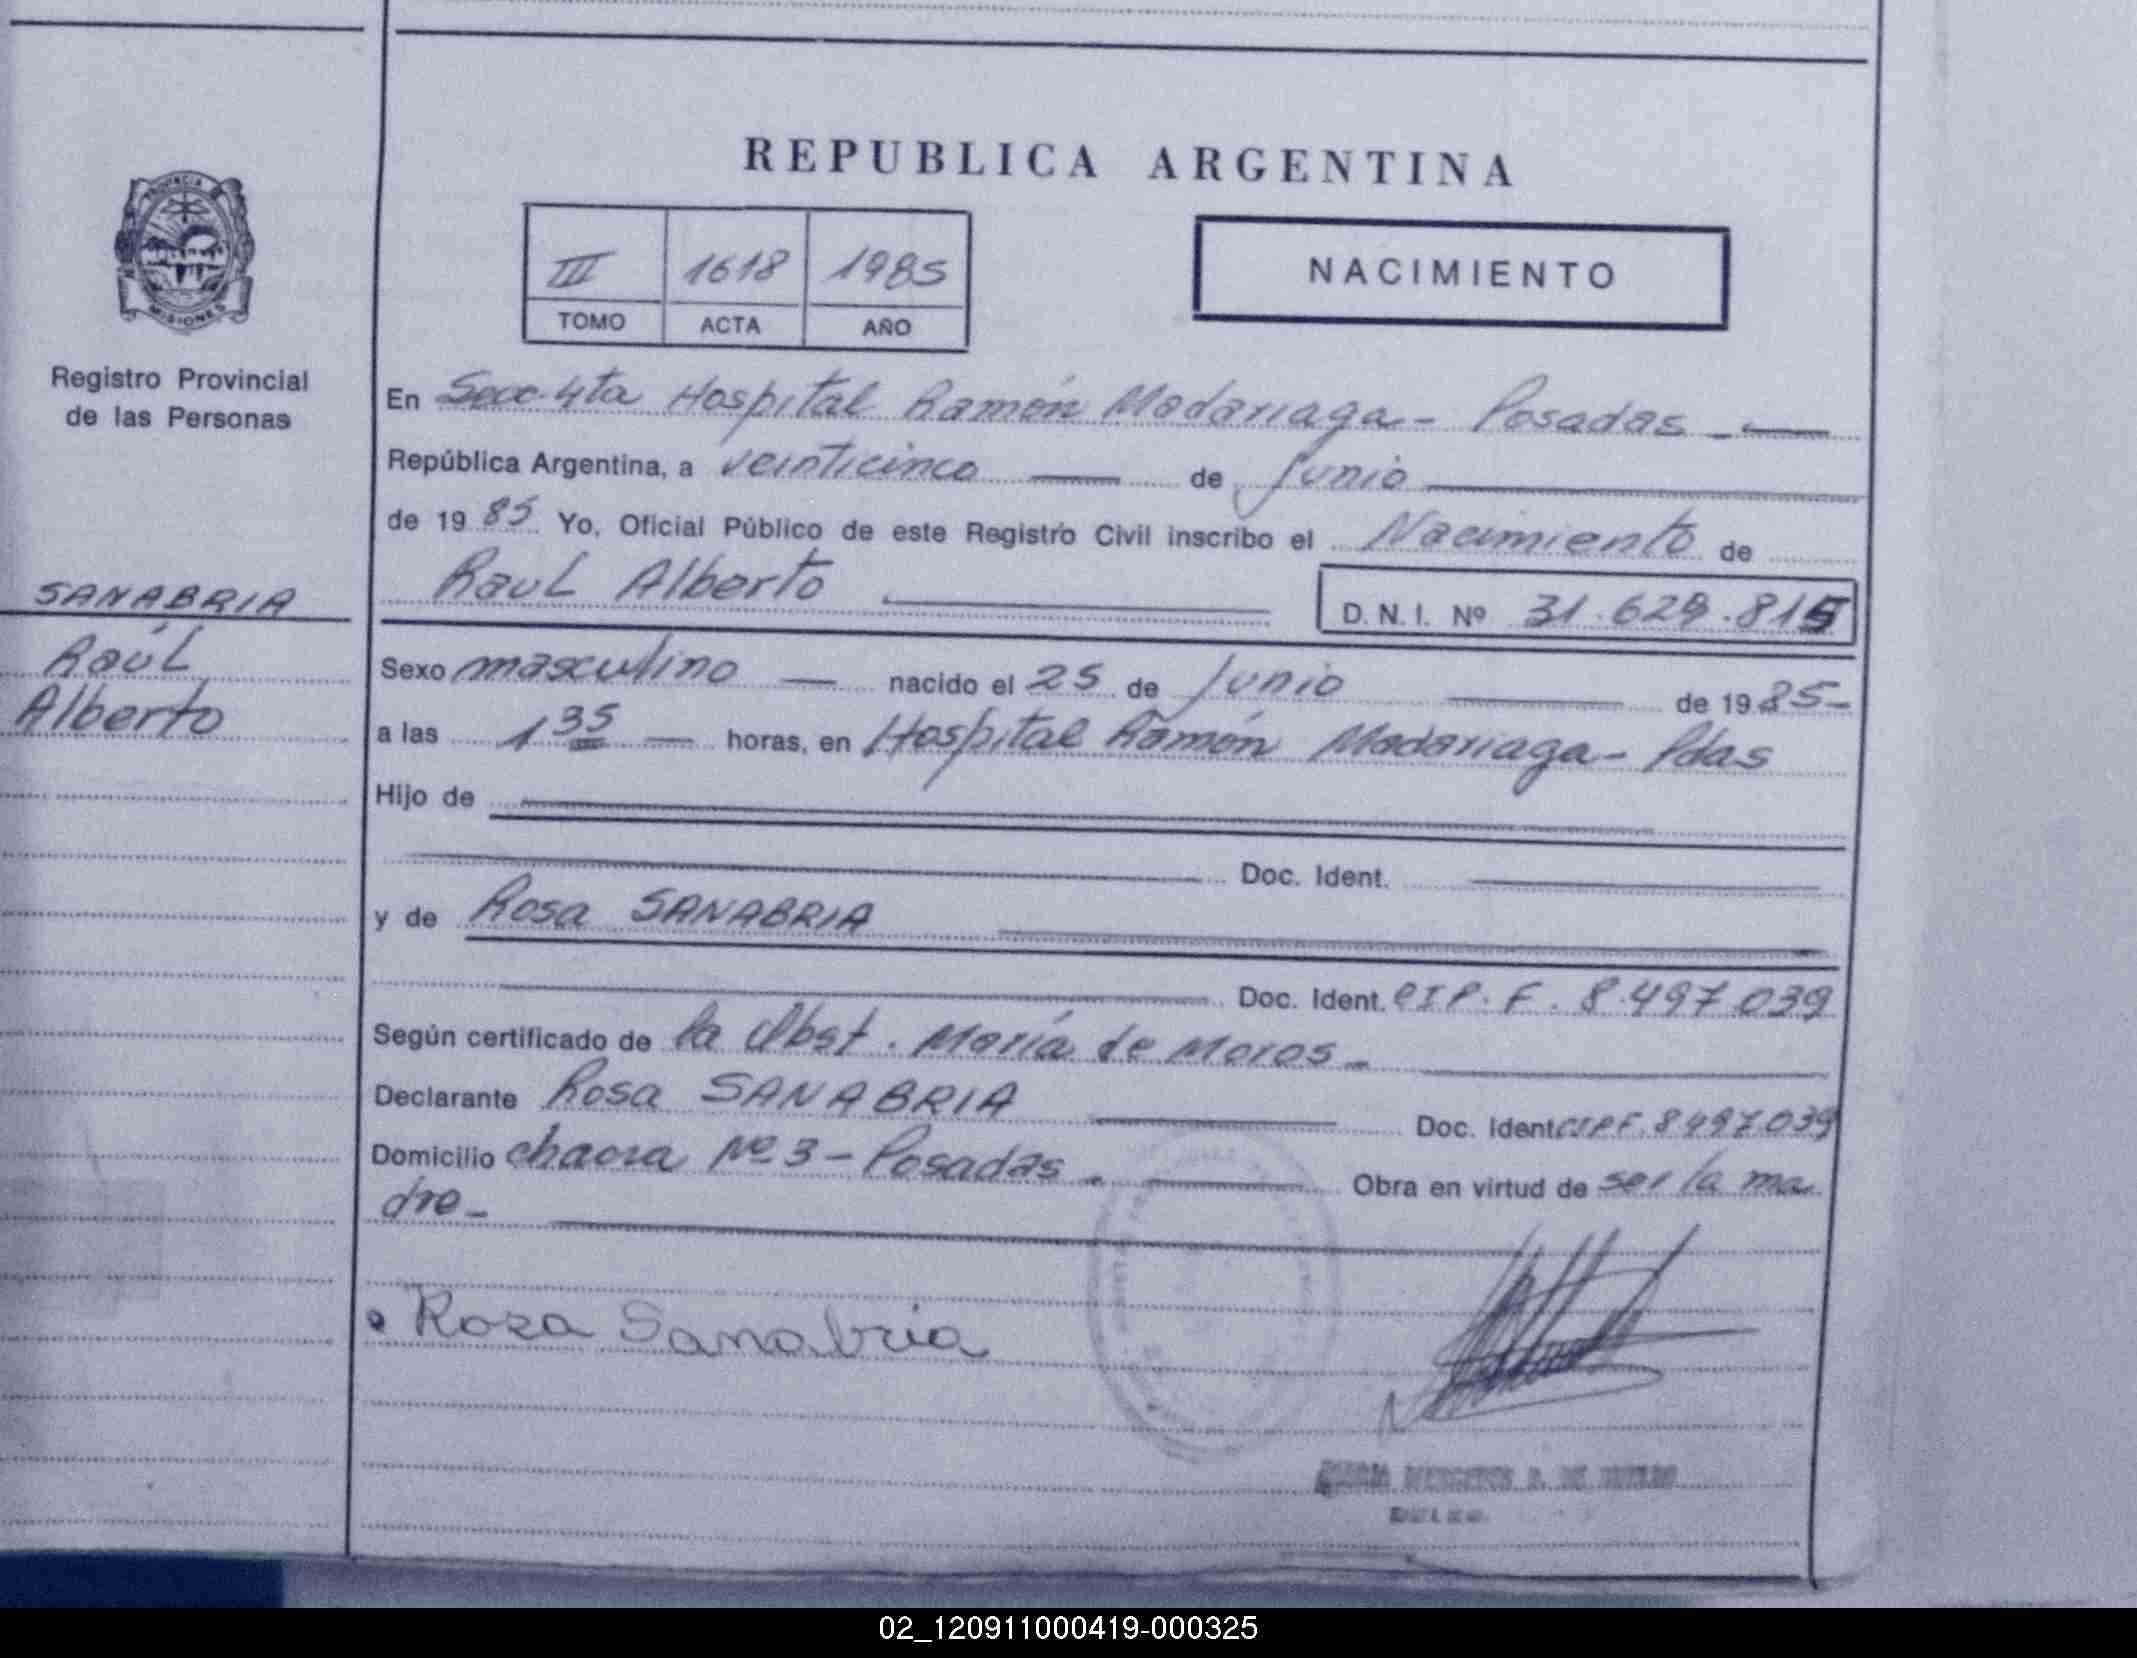 REPUBLICA ARGENTINA
PROVINCIA
MISIONES
Registro Provincial
de las Personas
III 1618 1985
TOMO ACTA AÑO
NACIMIENTO
En Secc. 4ta Hospital Ramón Madariaga - Posadas -
República Argentina, a veinticinco de Junio
de 19 85 Yo, Oficial Público de este Registro Civil inscribo el Nacimiento de
Raul Alberto D. N. I. Nº 31.629.815
SANABRIA
Raúl
Alberto
Sexo masculino nacido el 25 de Junio de 19 85-
a las 1 35 horas, en Hospital Ramón Madariaga - Pdas
Hijo de
Doc. Ident.
y de Rosa SANABRIA
Doc. Ident. CIP. F. 8.497.039
Según certificado de la Obst. María de Moros -
Declarante Rosa SANABRIA Doc. Ident CIPF. 8497.039
Domicilio chacra Nº 3 - Posadas. Obra en virtud de ser la ma
dre -
Rosa Sanabria
02_120911000419-000325